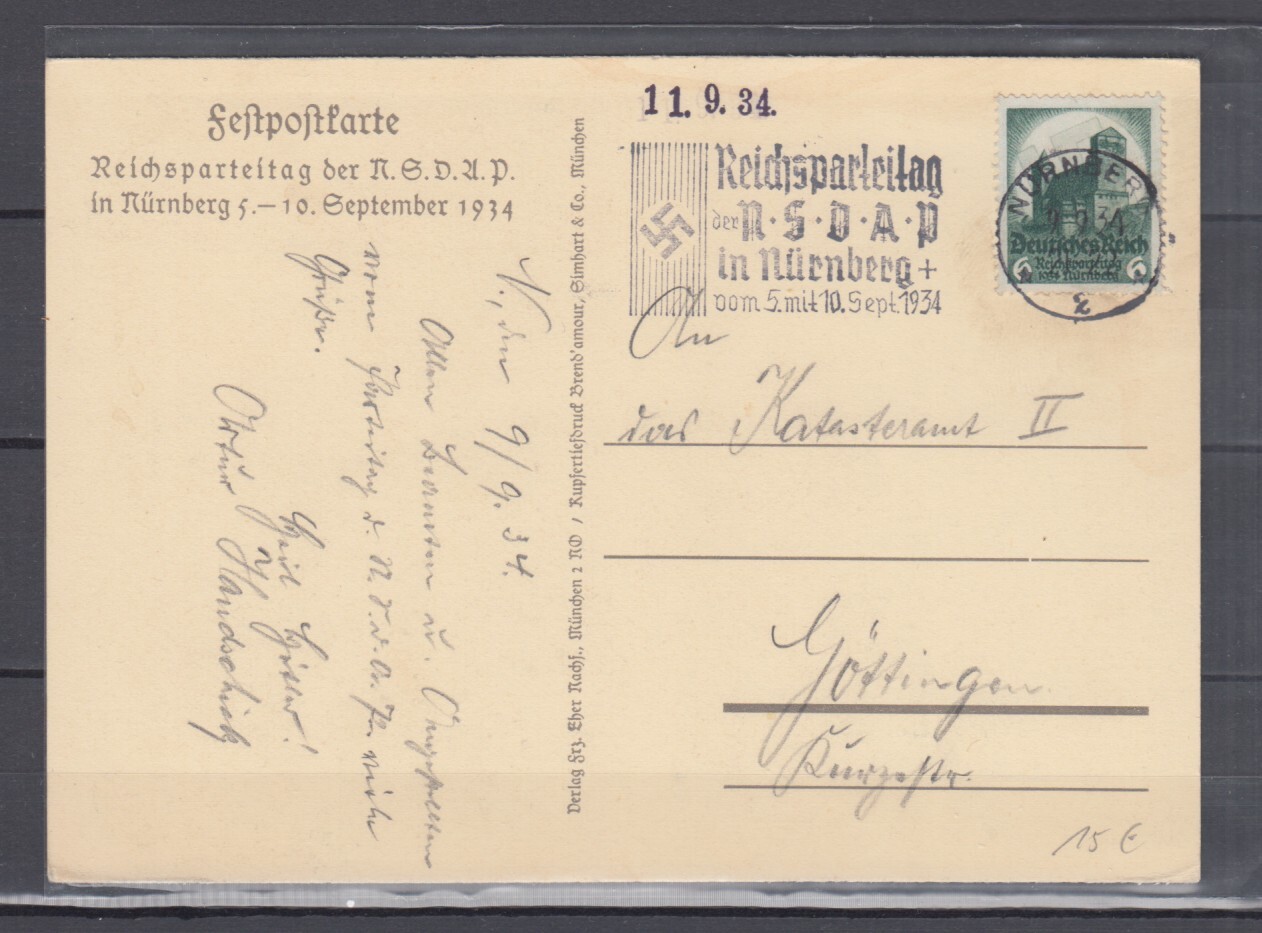 Festpostkarte
Reichsparteitag der N.S.D.A.P.
in Nürnberg 5.—10. September 1934
N., den 9/9. 34.
Allen Beamten u. Angestellten
vom Parteitag d. N.S.D.A.P. viele
Grüße.
Heil Hitler!
Artur Handschick
Verlag Frz. Eher Nachf., München 2 NO / Kupfertiefdruck Brend'amour, Simhart & Co., München
11. 9. 34.
Reichsparteitag
der N·S·D·A·P
in Nürnberg +
vom 5. mit 10. Sept. 1934
NÜRNBERG
9.9.34
2
Deutsches Reich
6 Reichsparteitag 6
1934 Nürnberg
An
das Katasteramt II
Göttingen
Kurzestr.
15 €